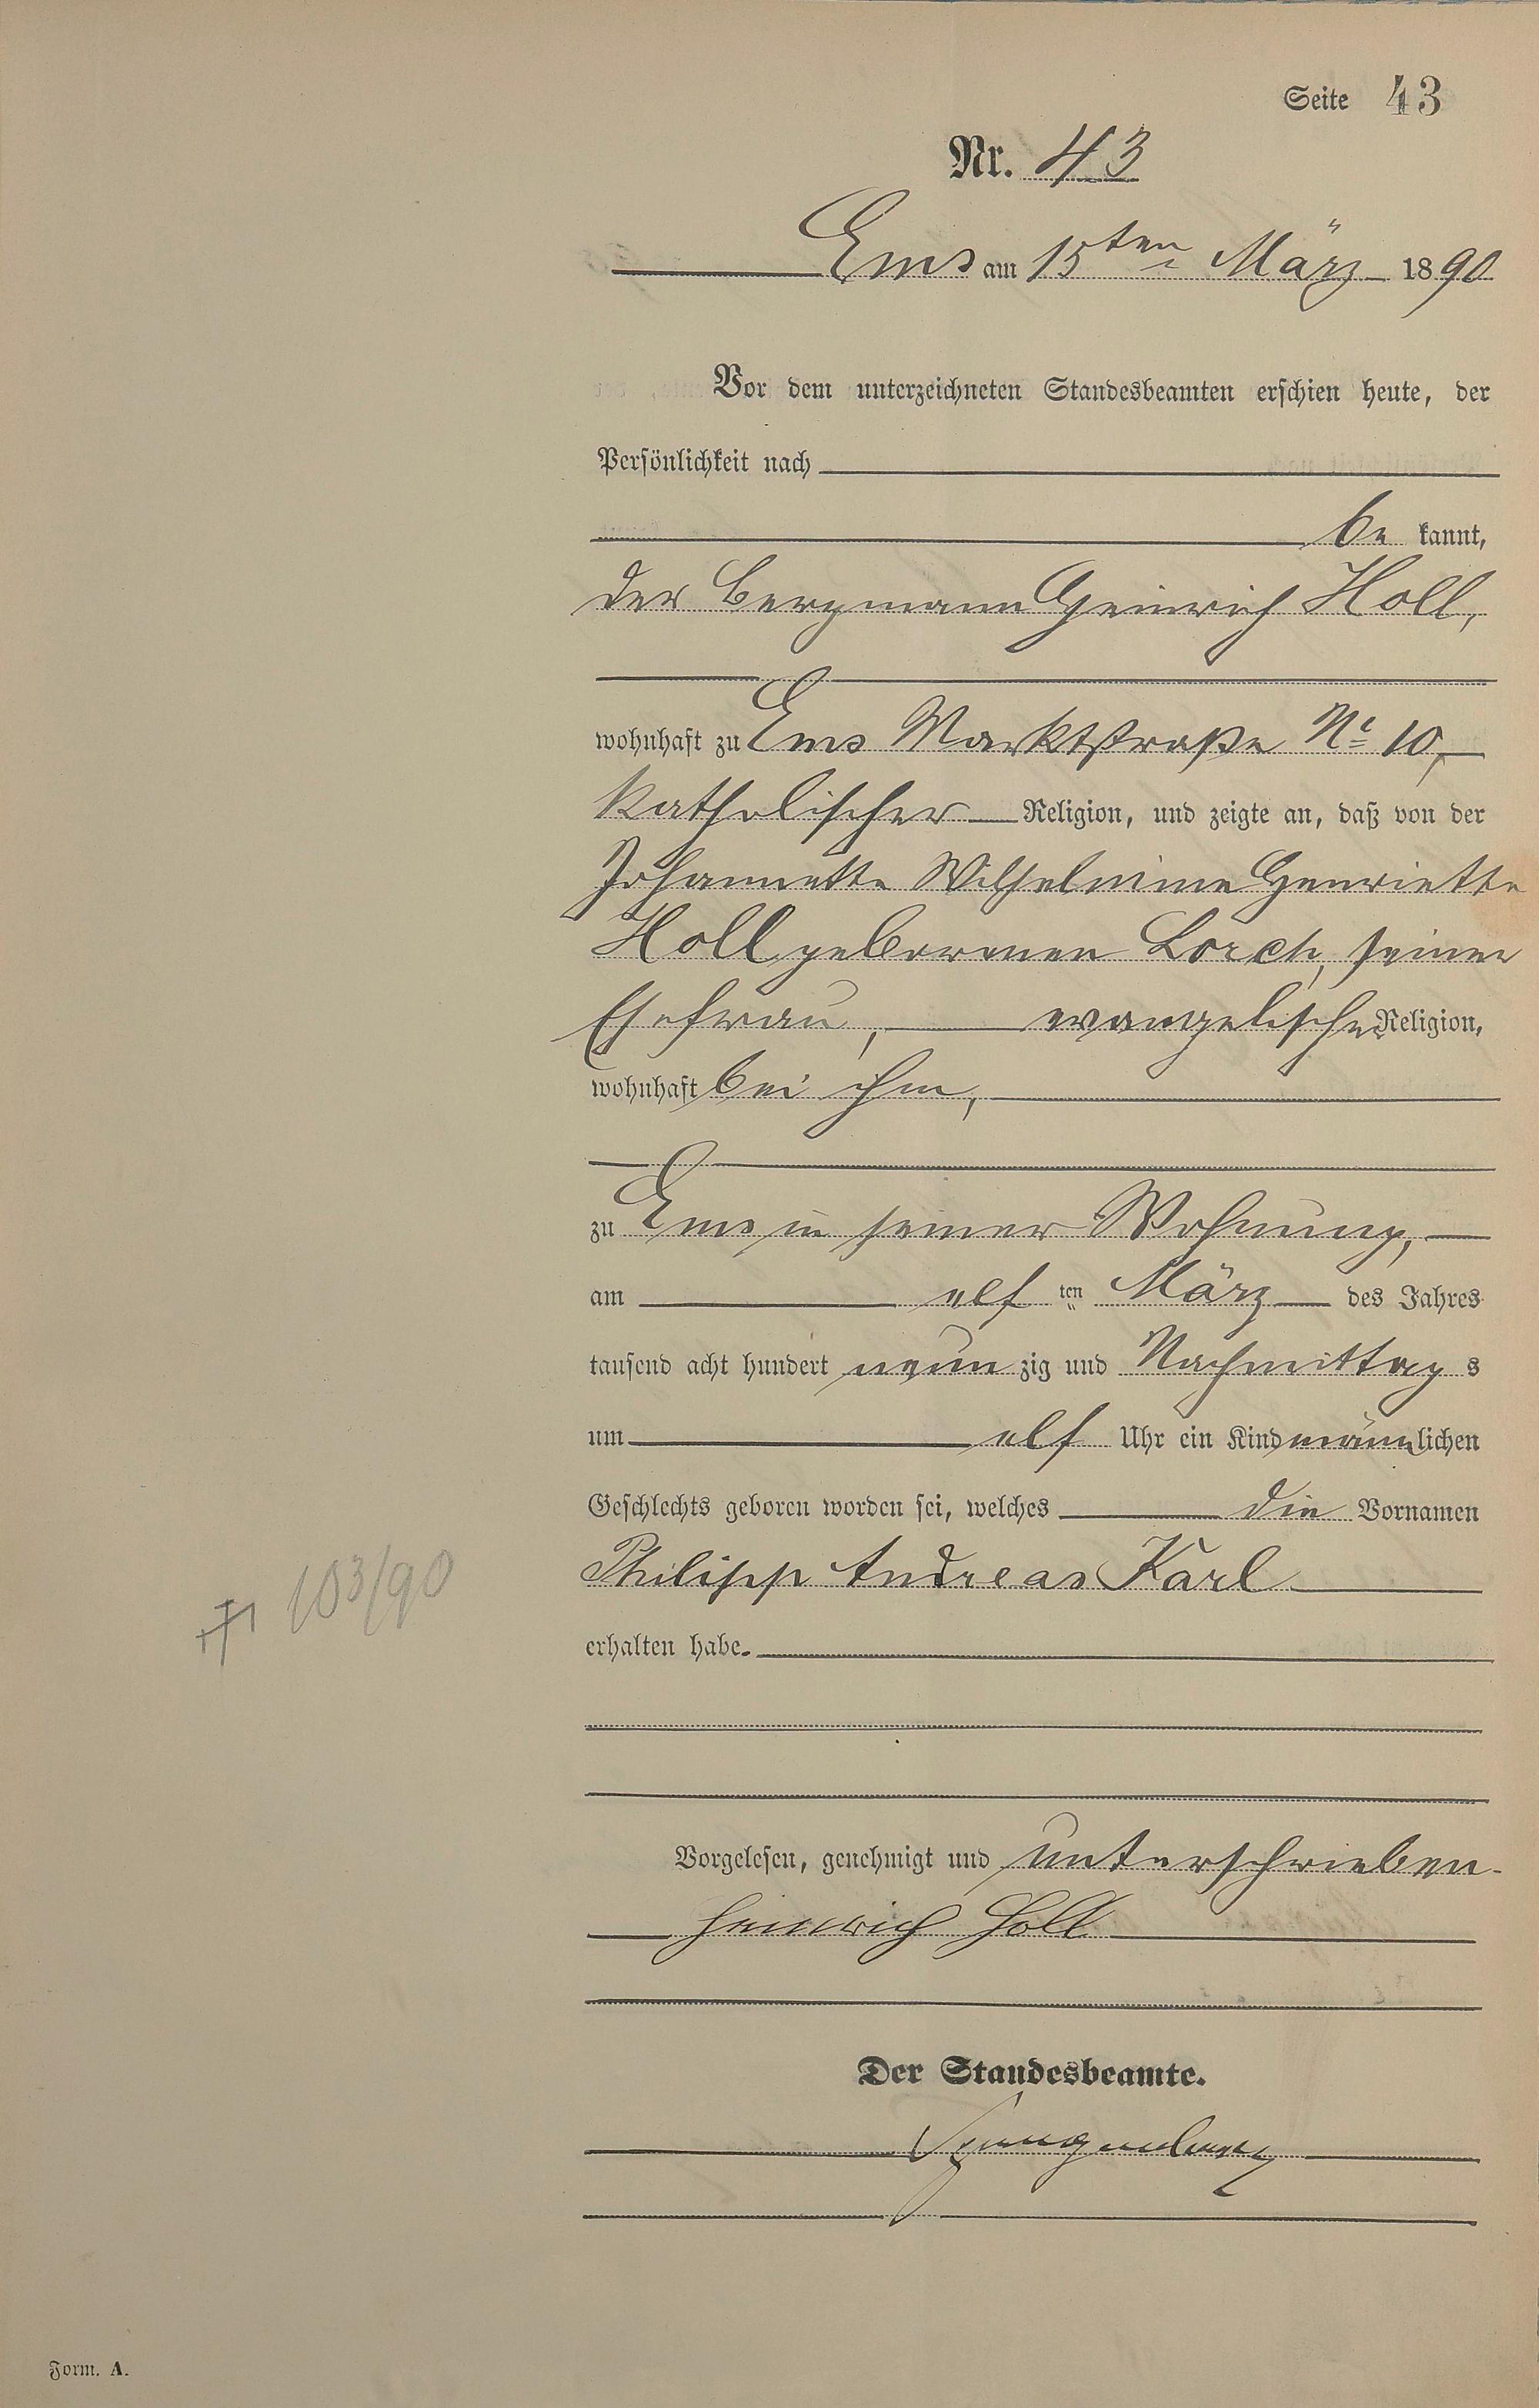 Seite 43
Nr. 43
Ems am 15ten März 1890
Vor dem unterzeichneten Standesbeamten erschien heute, der
Persönlichkeit nach
be kannt,
der Bergmann Heinrich Holl,
wohnhaft zu Ems Marktstraße No 10,
katholischer Religion, und zeigte an, daß von der
Johannette Wilhelmine Henriette
Holl gebornen Lorch, seiner
Ehefrau, evangelischer Religion,
wohnhaft bei ihm,
zu Ems in seiner Wohnung,
am elf ten März des Jahres
tausend acht hundert neun zig und Nachmittag s
um elf Uhr ein Kind männlichen
Geschlechts geboren worden sei, welches die Vornamen
Philipp Andreas Karl
103/90
erhalten habe.
Vorgelesen, genehmigt und unterschrieben
Heinrich Holl
Der Standesbeamte.
Spangenberg
Form. A.